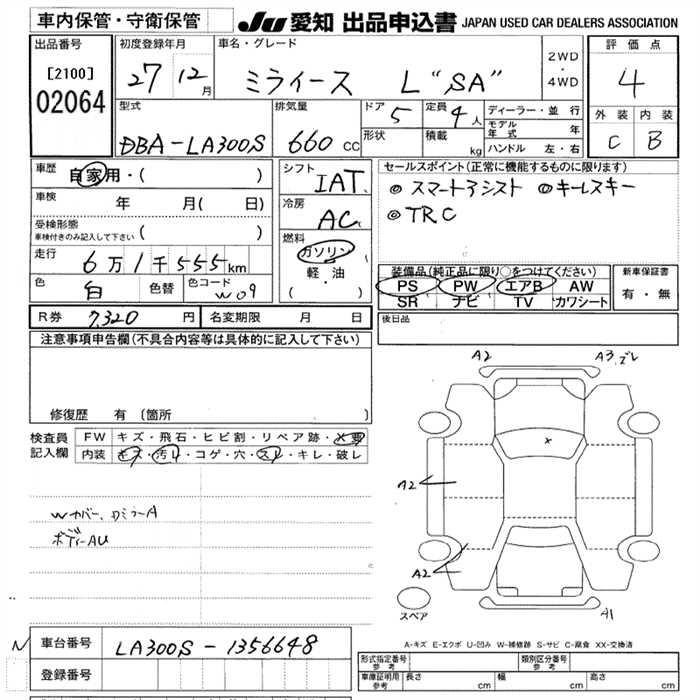 車内保管・守衛保管 JU 愛知 出品申込書 JAPAN USED CAR DEALERS ASSOCIATION
出品番号 初度登録年月 車名・グレード 2WD 評価点
[2100] 27 12月 ミライース L "SA" ・ 4
02064 4WD 外装 内装
型式 排気量 ドア 5 定員 4人 ディーラー・並行 C B
DBA-LA300S 660 cc 形状 積載 kg モデル年式 年
ハンドル 左・右
車歴 自家用・( ) シフト IAT セールスポイント(正常に機能するものに限ります)
車検 年 月( 日) 冷房 AC ◎スマートアシスト ◎キーレスキー
受検形態 ◎TRC
車検付きのみ記入して下さい ( ) 燃料
走行 6万1千555km ガソリン 装備品(純正品に限り○をつけてください) 新車保証書
色 白 色替 色コード W09 軽・油 PS PW エアB AW 有・無
( ) SR ナビ TV カワシート
R券 7320 円 名変期限 月 日 後日品
注意事項申告欄(不具合内容等は具体的に記入して下さい)
修復歴 有(箇所 )
検査員 FW キズ・飛石・ヒビ割・リペア跡・X要
記入欄 内装 キズ・汚レ・コゲ・穴・スレ・キレ・破レ
Wカバー、カミラーA
ボディーAU
A2 A3,ズレ
x
A2
A2
スペア A1
A-キズ E-エクボ U-凹み W-補修跡 S-サビ C-腐食 XX-交換済
N 車台番号 LA300S-1356648
登録番号
形式指定番号 参考 類別区分番号 参考
車庫証明用 参考 長さ cm 幅 cm 高さ cm